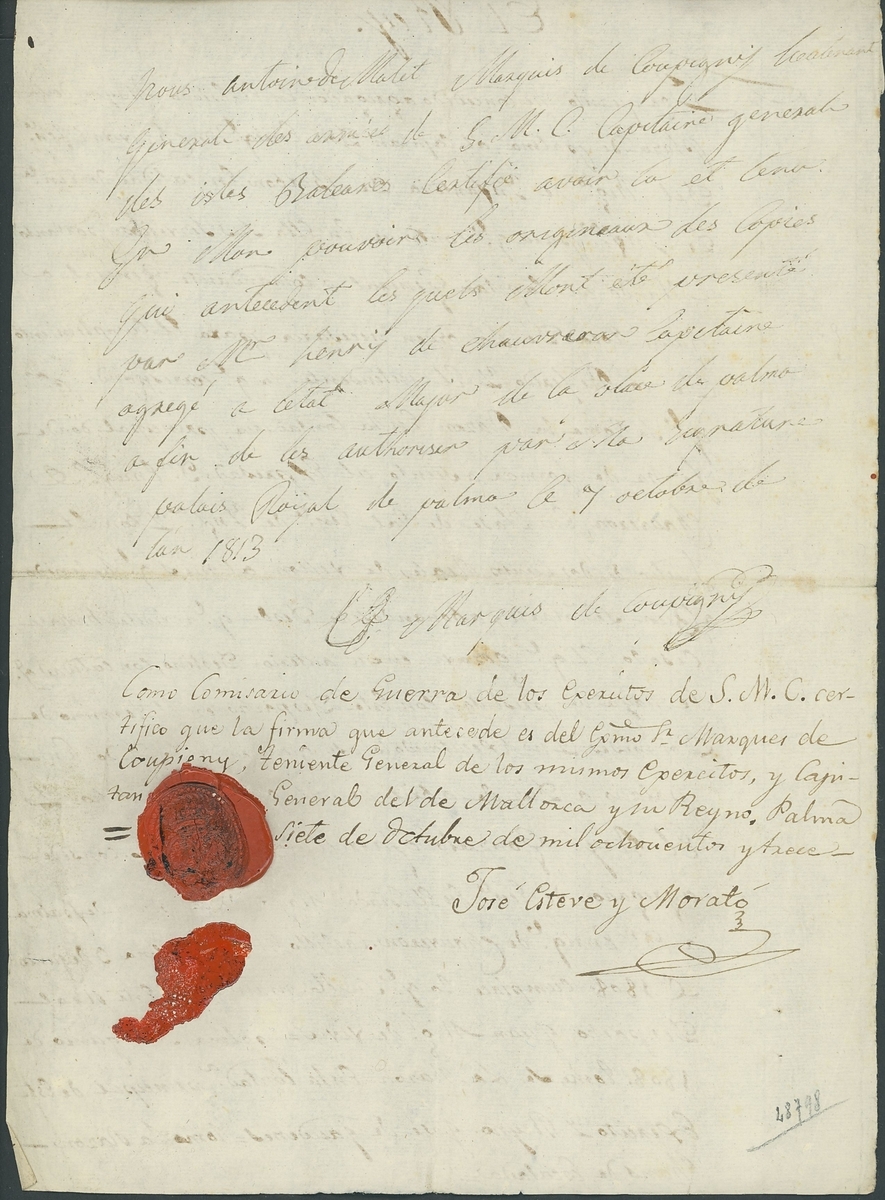 Nous antoine de Malet Marquis de Coupigny Lieutenant
General des armées de S. M. C. Capitaine general
des isles Baleares Certifie avoir lu et tenu
En Mon pouvoir les origineaux des Copies
qui antecedent les quels Mont eté presenté
par Mr henry de Capitaine
agregé a letat Major de la place de palma
a fin de les authoriser par Ma Signature
palais Royal de palma le 7 octobre de
lan 1813
Marquis de Coupigny
Como Comisario de Guerra de los Exercitos de S. M. C. cer-
tifico que la firma que antecede es del Exmo Sr Marques de
Coupigny, Teniente General de los mismos Exercitos, y Capi-
tan General del de Mallorca y su Reyno. Palma
= Siete de Octubre de mil ochocientos y trece—
José Esteve y Morató
48798